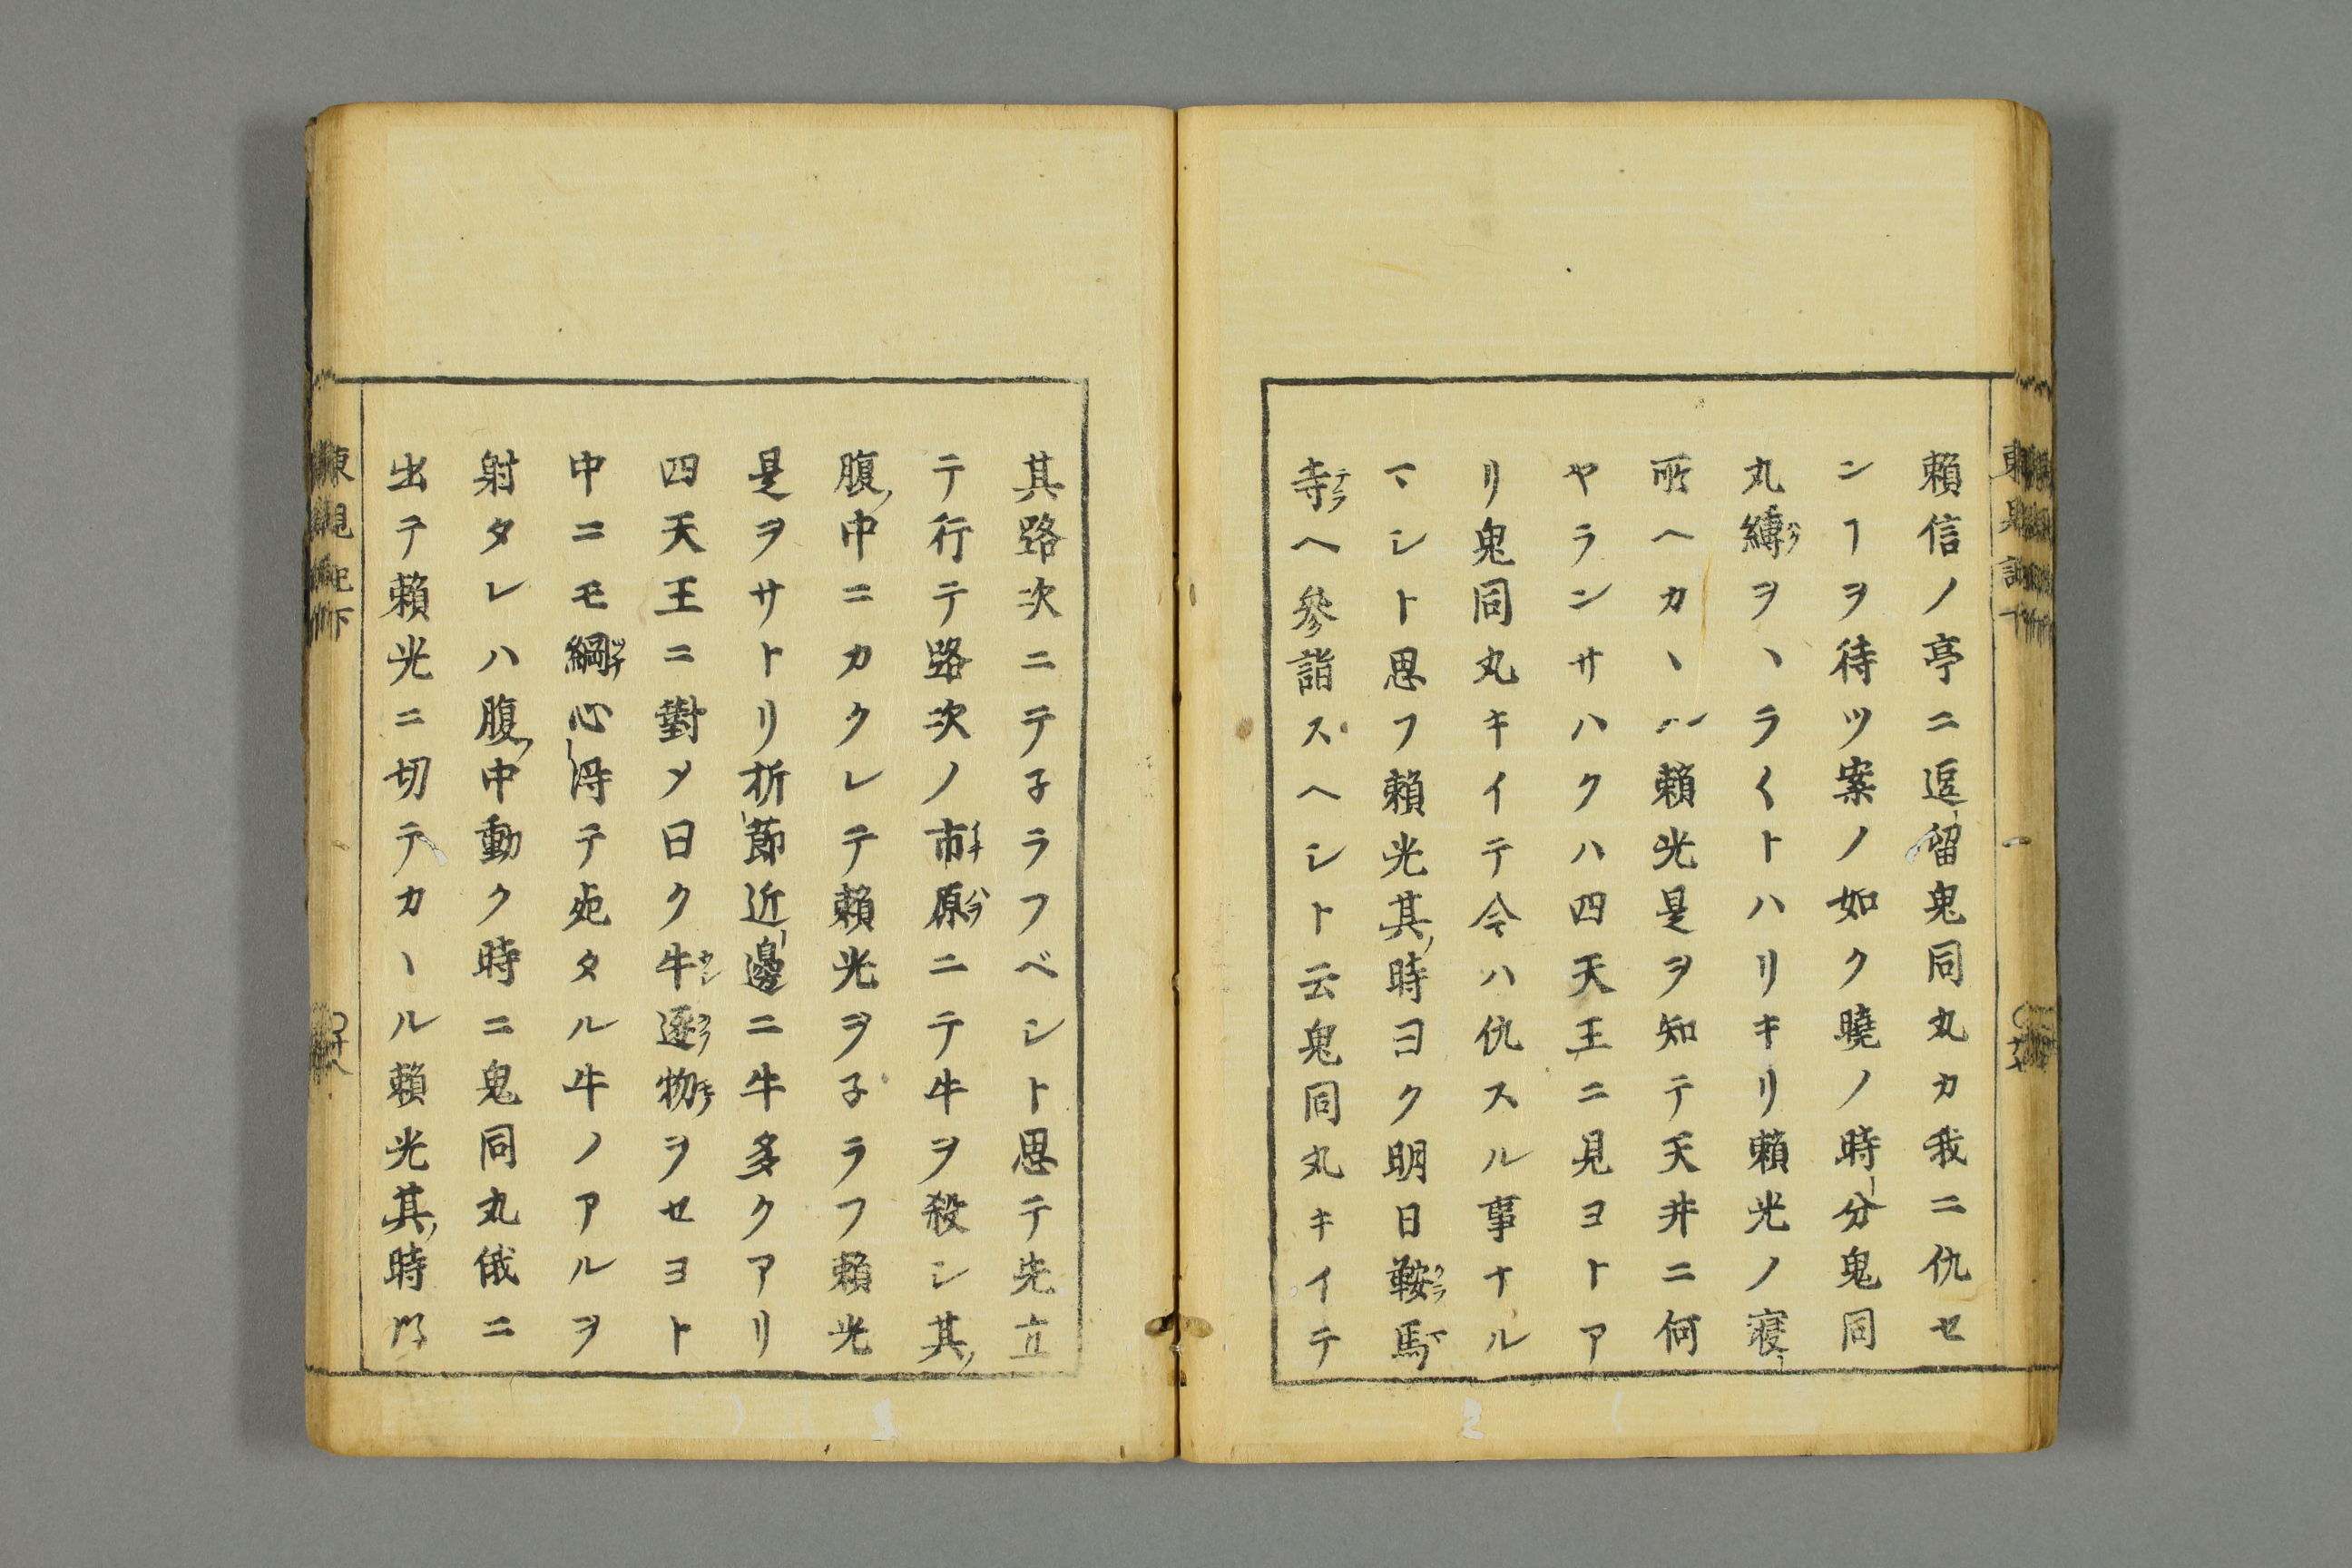 賴信ノ亭ニ逗留鬼同丸カ我ニ仇セ
ンヿヲ待ツ案ノ如ク曉ノ時分鬼同
丸縛ヲヽラくトハリキリ賴光ノ寢
所ヘカヽル賴光是ヲ知テ天井ニ何
ヤランサハクハ四天王ニ見ヨトア
リ鬼同丸キイテ今ハ仇スル事ナル
マシト思フ賴光其時ヨク明日鞍馬
寺ヘ參詣スヘシト云鬼同丸キイテ
其路次ニテ子ラフベシト思テ先立
テ行テ路次ノ市原ニテ牛ヲ殺シ其
腹中ニカクレテ賴光ヲ子ラフ賴光
是ヲサトリ折節近邊ニ牛多クアリ
四天王ニ對メ曰ク牛逐物ヲセヨト
中ニモ綱心得テ死タル牛ノアルヲ
射タレハ腹中動ク時ニ鬼同丸俄ニ
出テ賴光ニ切テカヽル賴光其時
東見記下